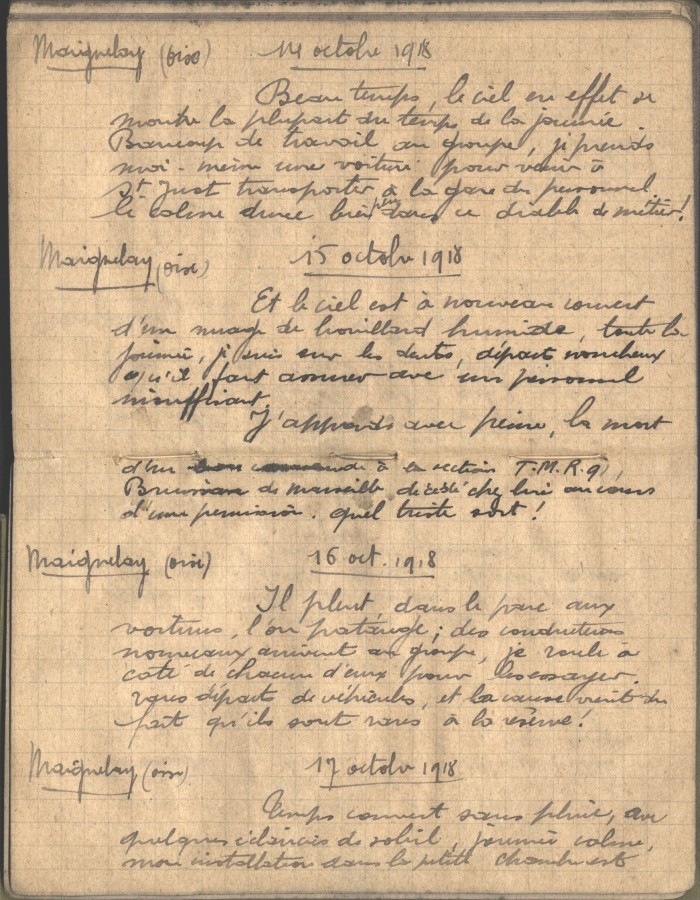 Maignelay (Oise) 14 octobre 1918
Beau temps, le ciel en effet se
montre la plupart du temps de la journée
Beaucoup de travail au groupe, je prends
moi-même une voiture pour venir à
St Just transporter à la gare du personnel.
le calme dure bien peu dans ce diable de métier!
Maignelay (Oise) 15 octobre 1918
Et le ciel est à nouveau couvert
d'un nuage de brouillard humide, toute la
journée, je suis sur les dents, départs nombreux
qu'il faut assurer avec un personnel
insuffisant.
J'apprends avec peine, la mort
d'un à la section T.M.R.9,
de Marseille décédé chez lui au cours
d'une permission. quel triste sort!
Maignelay (Oise) 16 oct. 1918
Il pleut, dans le parc aux
voitures, l'on patauge; des conducteurs
nouveaux arrivent au groupe, je roule à
côté de chacun d'eux pour les essayer.
rares départs de véhicules, et la cause vient du
fait qu'ils sont rares à la réserve!
Maignelay (Oise) 17 octobre 1918
Temps couvert sans pluie, avec
quelques éclaircies de soleil, journée calme,
mon installation dans la petite chambre est